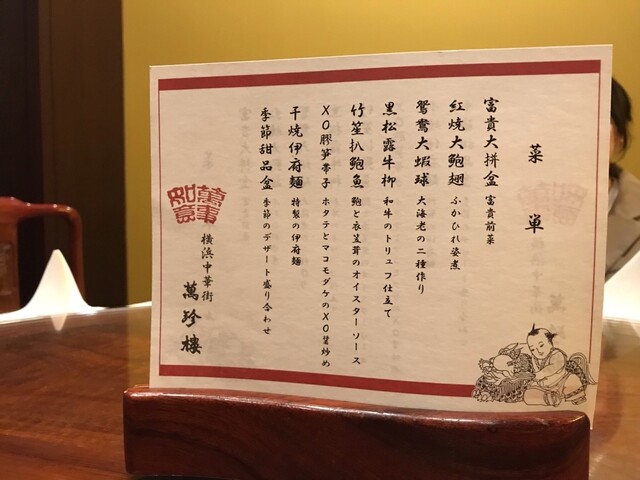 菜単
富貴大拼盆 富貴前菜
紅焼大鮑翅 ふかひれ姿煮
鴛鴦大蝦球 大海老の二種作り
黒松露牛柳 和牛のトリュフ仕立て
竹笙扒鮑魚 鮑と衣笠茸のオイスターソース
XO膠笋帯子 ホタテとマコモダケのXO醤炒め
干焼伊府麺 特製の伊府麺
季節甜品盆 季節のデザート盛り合わせ
萬事如意
横浜中華街
萬珍樓